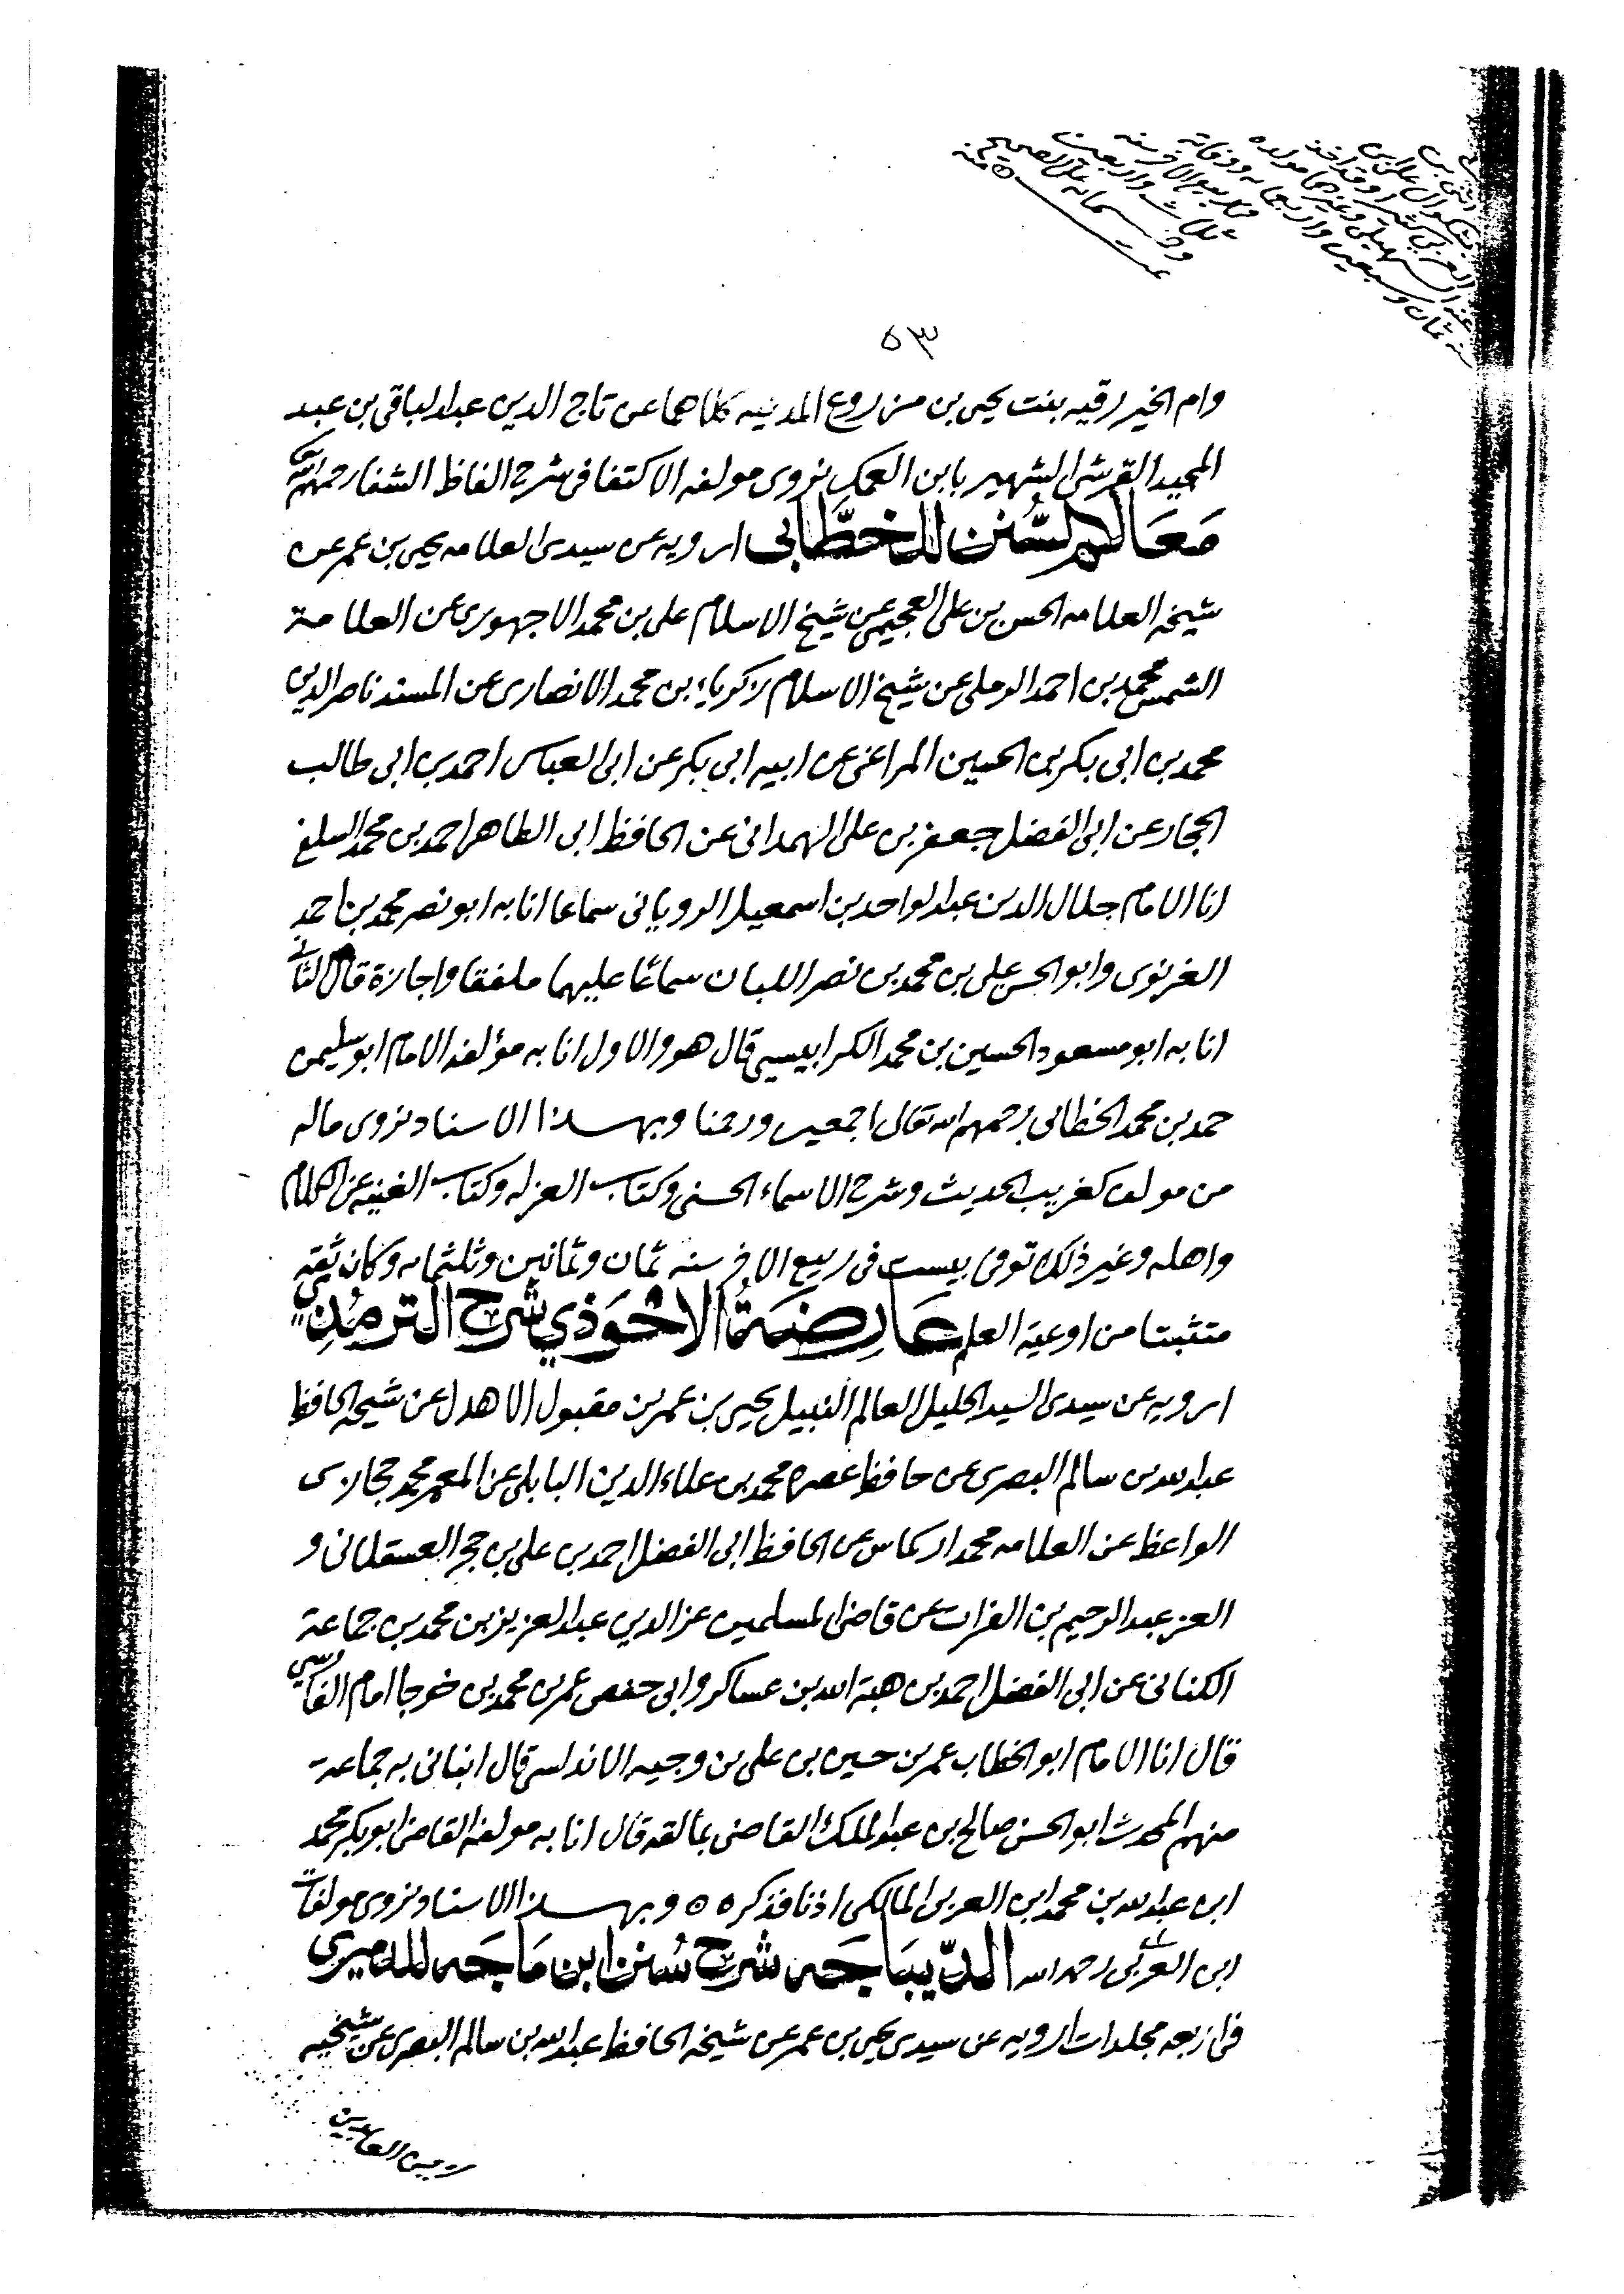 ٥٣
وام الخير رقيه بنت يحيى بن مزروع المدنيه كلاهما عن تاج الدين عبد الباقي بن عبد
المجيد القرشي الشهير بابن العمك نروى مولفه الاكتفا في شرح الفاظ الشفا رحمهم الله
مَعَالم السُّنن للخطَّابى ارويه عن سيدى العلامه يحيى بن عمر عن
شيخه العلامه الحسن بن على العجيمى عن شيخ الاسلام على بن محمد الاجهورى عن العلامة
الشمس محمد بن احمد الرملى عن شيخ الاسلام زكرياء بن محمد الانصارى عن المسند ناصر الدين
محمد بن ابى بكر بن الحسين المراغى عن ابيه ابى بكر عن ابى العباس احمد بن ابى طالب
الحجار عن ابى الفضل جعفر بن على الهمدانى عن الحافظ ابى الطاهر احمد بن محمد السلفى
انا الامام جلال الدين عبد الواحد بن اسمعيل الرويانى سماعا انا به ابو نصر محمد بن احمد
الغزنوى وابو الحسن على بن محمد بن نصر اللبان سماعًا عليهما ملفقا واجازة قال الثانى
انا به ابو مسعود الحسين بن محمد الكرابيسى قال هو والاول انا به مؤلفه الامام ابو سليمن
حمد بن محمد الخطابى رحمهم الله تعالى اجمعين ورحمنا وبهذا الاسناد نروى ماله
من مولف كغريب الحديث وشرح الاسماء الحسنى وكتاب العزله وكتاب الغنيه عن الكلام
واهله وغير ذلك توفى ببست فى ربيع الاخر سنه ثمان وثمانين وثلثمايه وكان ثقه
متثبتا من اوعية العلم عَارِضَةُ الاحْوَذي شَرح الترمذِي
ارويه عن سيدى السيد الجليل العالم النبيل يحيى بن عمر بن مقبول الاهدل عن شيخه الحافظ
عبد الله بن سالم البصرى عن حافظ عصره محمد بن علاء الدين البابلى عن المعمر محمد حجازى
الواعظ عن العلامه محمد اركماس عن الحافظ ابى الفضل احمد بن على بن حجر العسقلانى و
العز عبد الرحيم بن الفرات عن قاضى المسلمين عز الدين عبد العزيز بن محمد بن جماعة
الكنانى عن ابى الفضل احمد بن هبة الله بن عساكر وابى حفص عمر بن محمد بن خوجا امام الفارسى
قال انا الامام ابو الخطاب عمر بن حسين بن على بن وجيه الاندلسى قال انبانى به جماعة
منهم المحدث ابو الحسن صالح بن عبد الملك القاضى بمالقه قال انا به مولفه القاضى ابو بكر محمد
ابن عبد الله بن محمد ابن العربى المالكى اذنا فذكره ٥ وبهذا الاسناد نروى مولفات
ابن العربى رحمه الله الدّيبَاجَه شرح سُنن ابن مَاجَه للدميرى
فى اربعه مجلدات ارويه عن سيدى يحيى بن عمر عن شيخه الحافظ عبد الله بن سالم البصرى عن شيخيه
زين العابدين